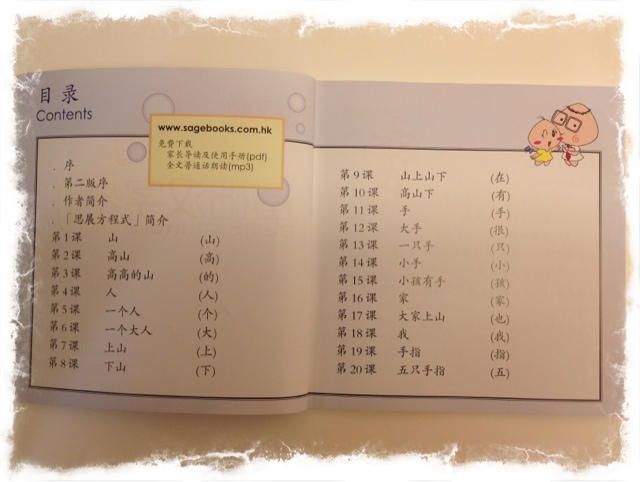 目录
Contents
www.sagebooks.com.hk
免费下载
家长导读及使用手册(pdf)
全文普通话朗读(mp3)
. 序
. 第二版序
. 作者简介
. 「思展方程式」简介
第1课 山 (山)
第2课 高山 (高)
第3课 高高的山 (的)
第4课 人 (人)
第5课 一个人 (个)
第6课 一个大人 (大)
第7课 上山 (上)
第8课 下山 (下)
第9课 山上山下 (在)
第10课 高山下 (有)
第11课 手 (手)
第12课 大手 (很)
第13课 一只手 (只)
第14课 小手 (小)
第15课 小孩有手 (孩)
第16课 家 (家)
第17课 大家上山 (也)
第18课 我 (我)
第19课 手指 (指)
第20课 五只手指 (五)